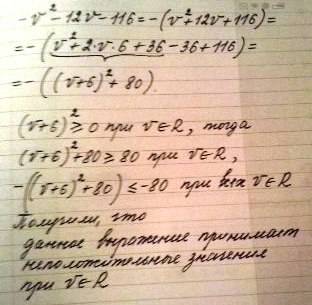 -v²-12v-116=-(v²+12v+116)=
=-(v²+2·v·6+36-36+116)=
=-((v+6)²+80).
(v+6)²≥0 при v∈R, тогда
(v+6)²+80≥80 при v∈R,
-((v+6)²+80)≤-80 при всех v∈R
Получили, что
данное выражение принимает
неположительные значения
при v∈R